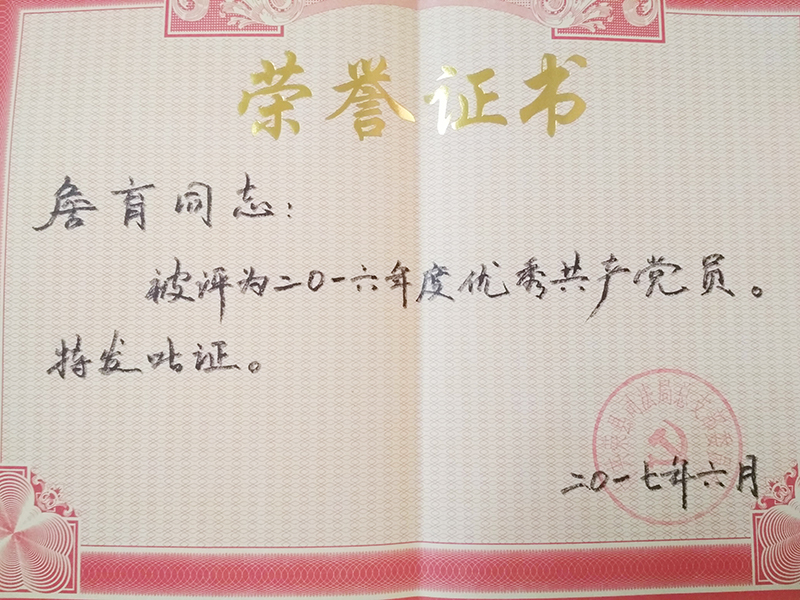 荣誉证书
詹育同志：
被评为二〇一六年度优秀共产党员。
特发此证。
司法局党支部委
二〇一七年六月